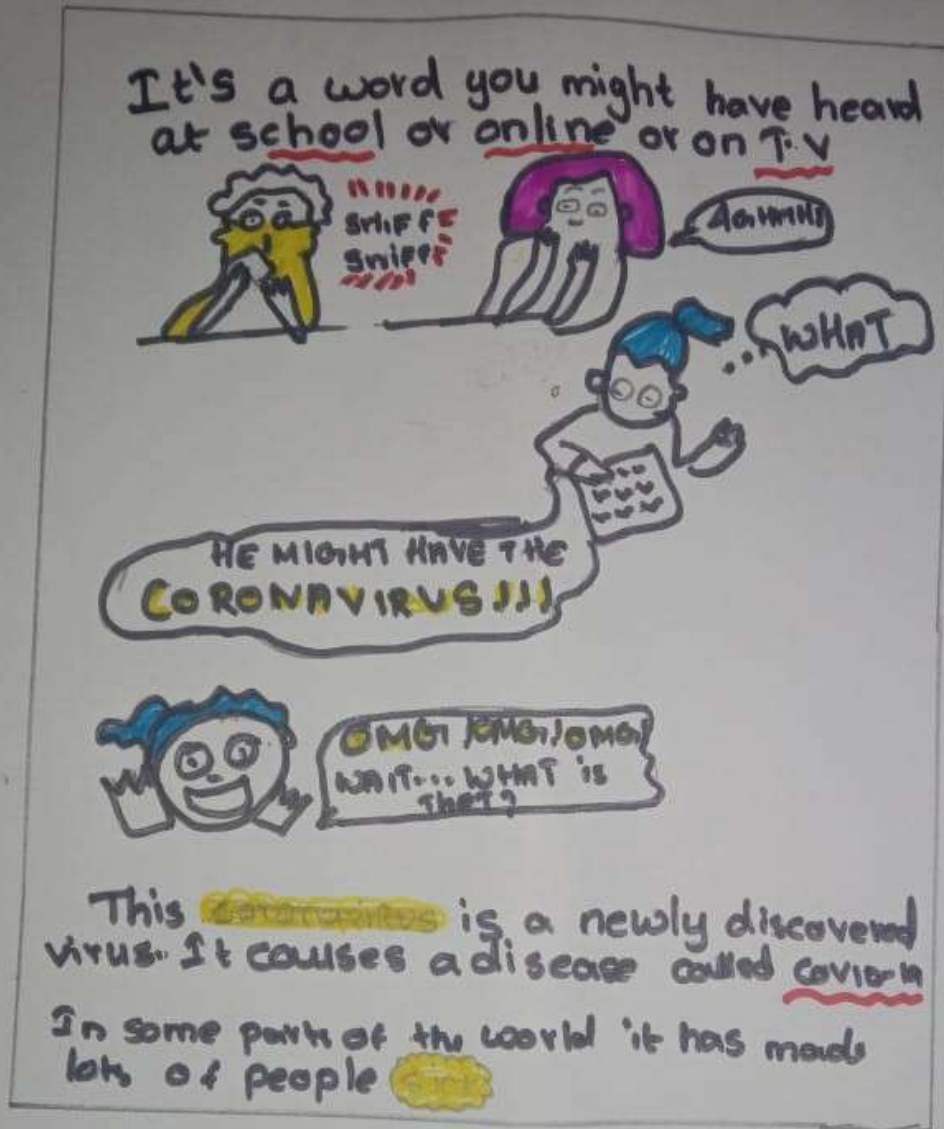 It's a word you might have heard
at school or online or on T.V
SNIFF
SNIFF
WHAT
HE MIGHT HAVE THE
CORONAVIRUS!!!
OMG!OMG!OMG!
WAIT... WHAT is
THAT?
This coronavirus is a newly discovered
virus. It causes a disease called COVID-19
In some parts of the world it has made
lots of people sick